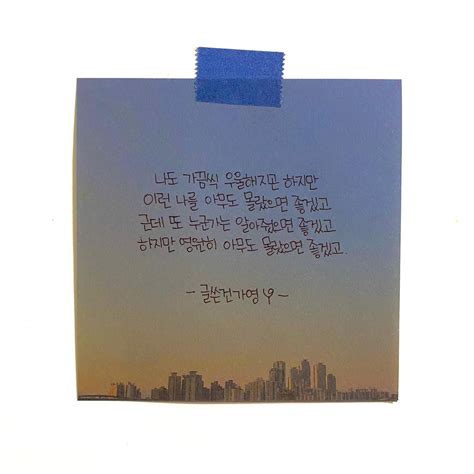 나도 가끔씩 우울해지곤 하지만
이런 나를 아무도 몰랐으면 좋겠고
근데 또 누군가는 알아줬으면 좋겠고
하지만 영원히 아무도 몰랐으면 좋겠고.
- 글쓴건가영 -